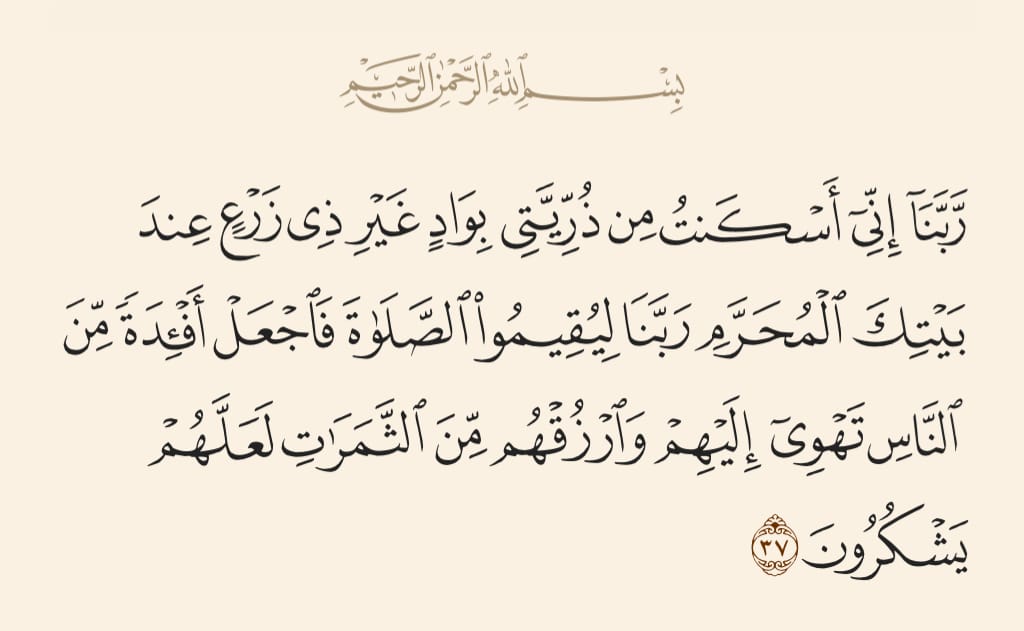 بِسْمِ ٱللَّهِ ٱلرَّحْمَٰنِ ٱلرَّحِيمِ
رَّبَّنَآ إِنِّىٓ أَسْكَنتُ مِن ذُرِّيَّتِى بِوَادٍ غَيْرِ ذِى زَرْعٍ عِندَ
بَيْتِكَ ٱلْمُحَرَّمِ رَبَّنَا لِيُقِيمُوا۟ ٱلصَّلَوٰةَ فَٱجْعَلْ أَفْـِٔدَةً مِّنَ
ٱلنَّاسِ تَهْوِىٓ إِلَيْهِمْ وَٱرْزُقْهُم مِّنَ ٱلثَّمَرَٰتِ لَعَلَّهُمْ
يَشْكُرُونَ ٣٧